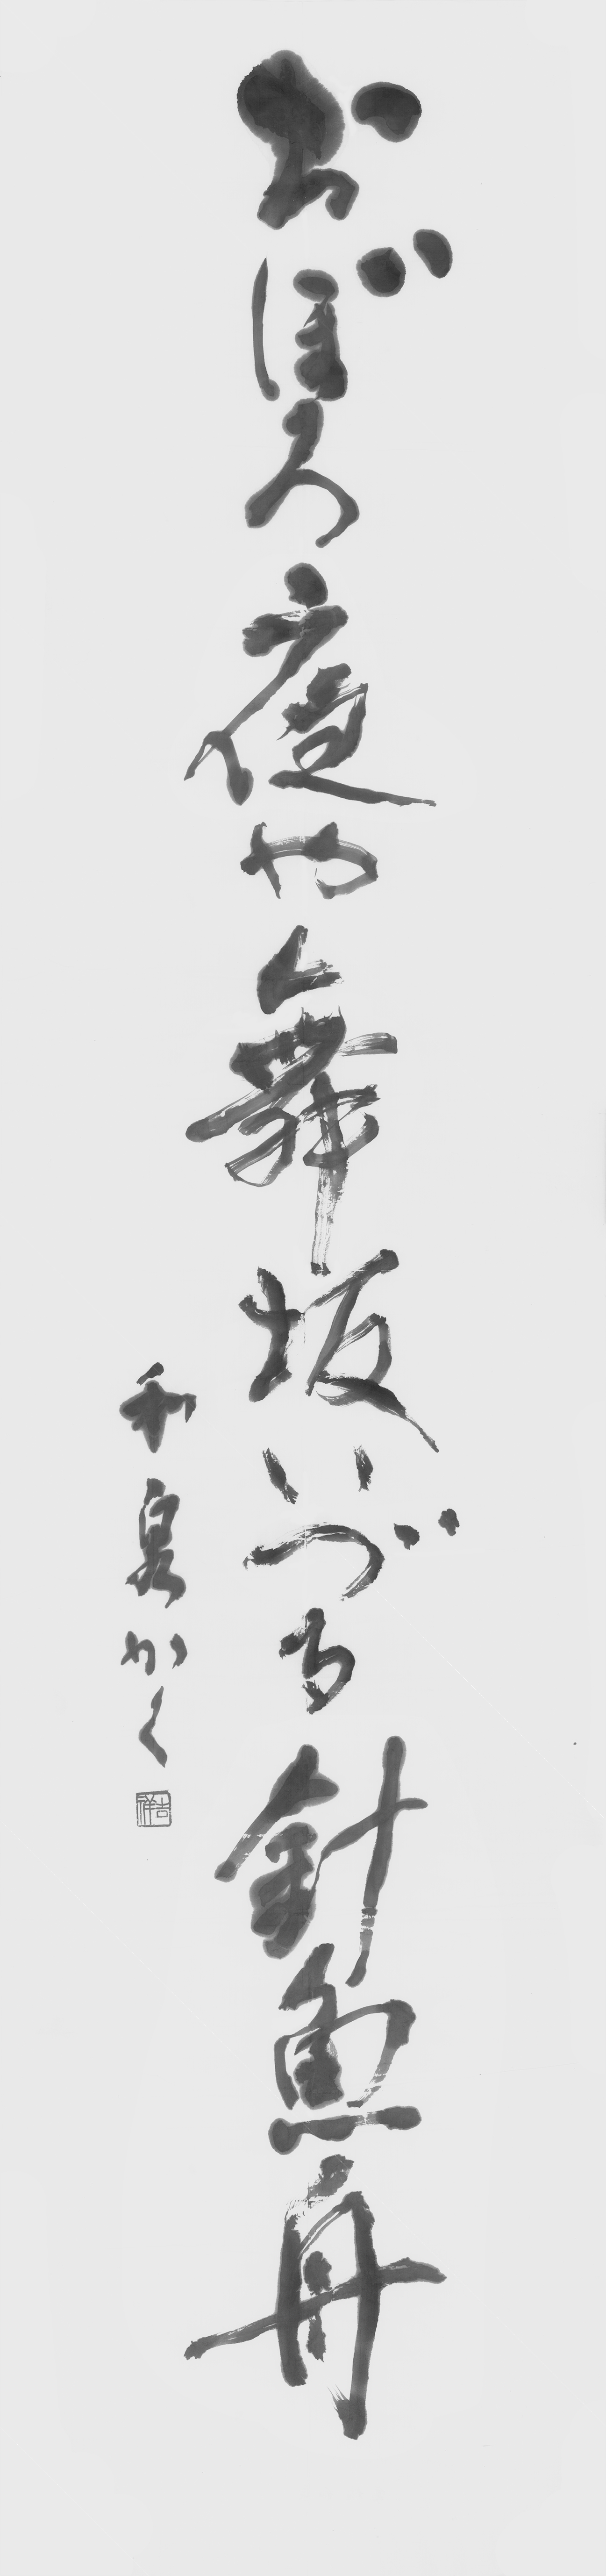 おぼろ夜や舞坂いづる針魚舟
和泉かく
吉祥